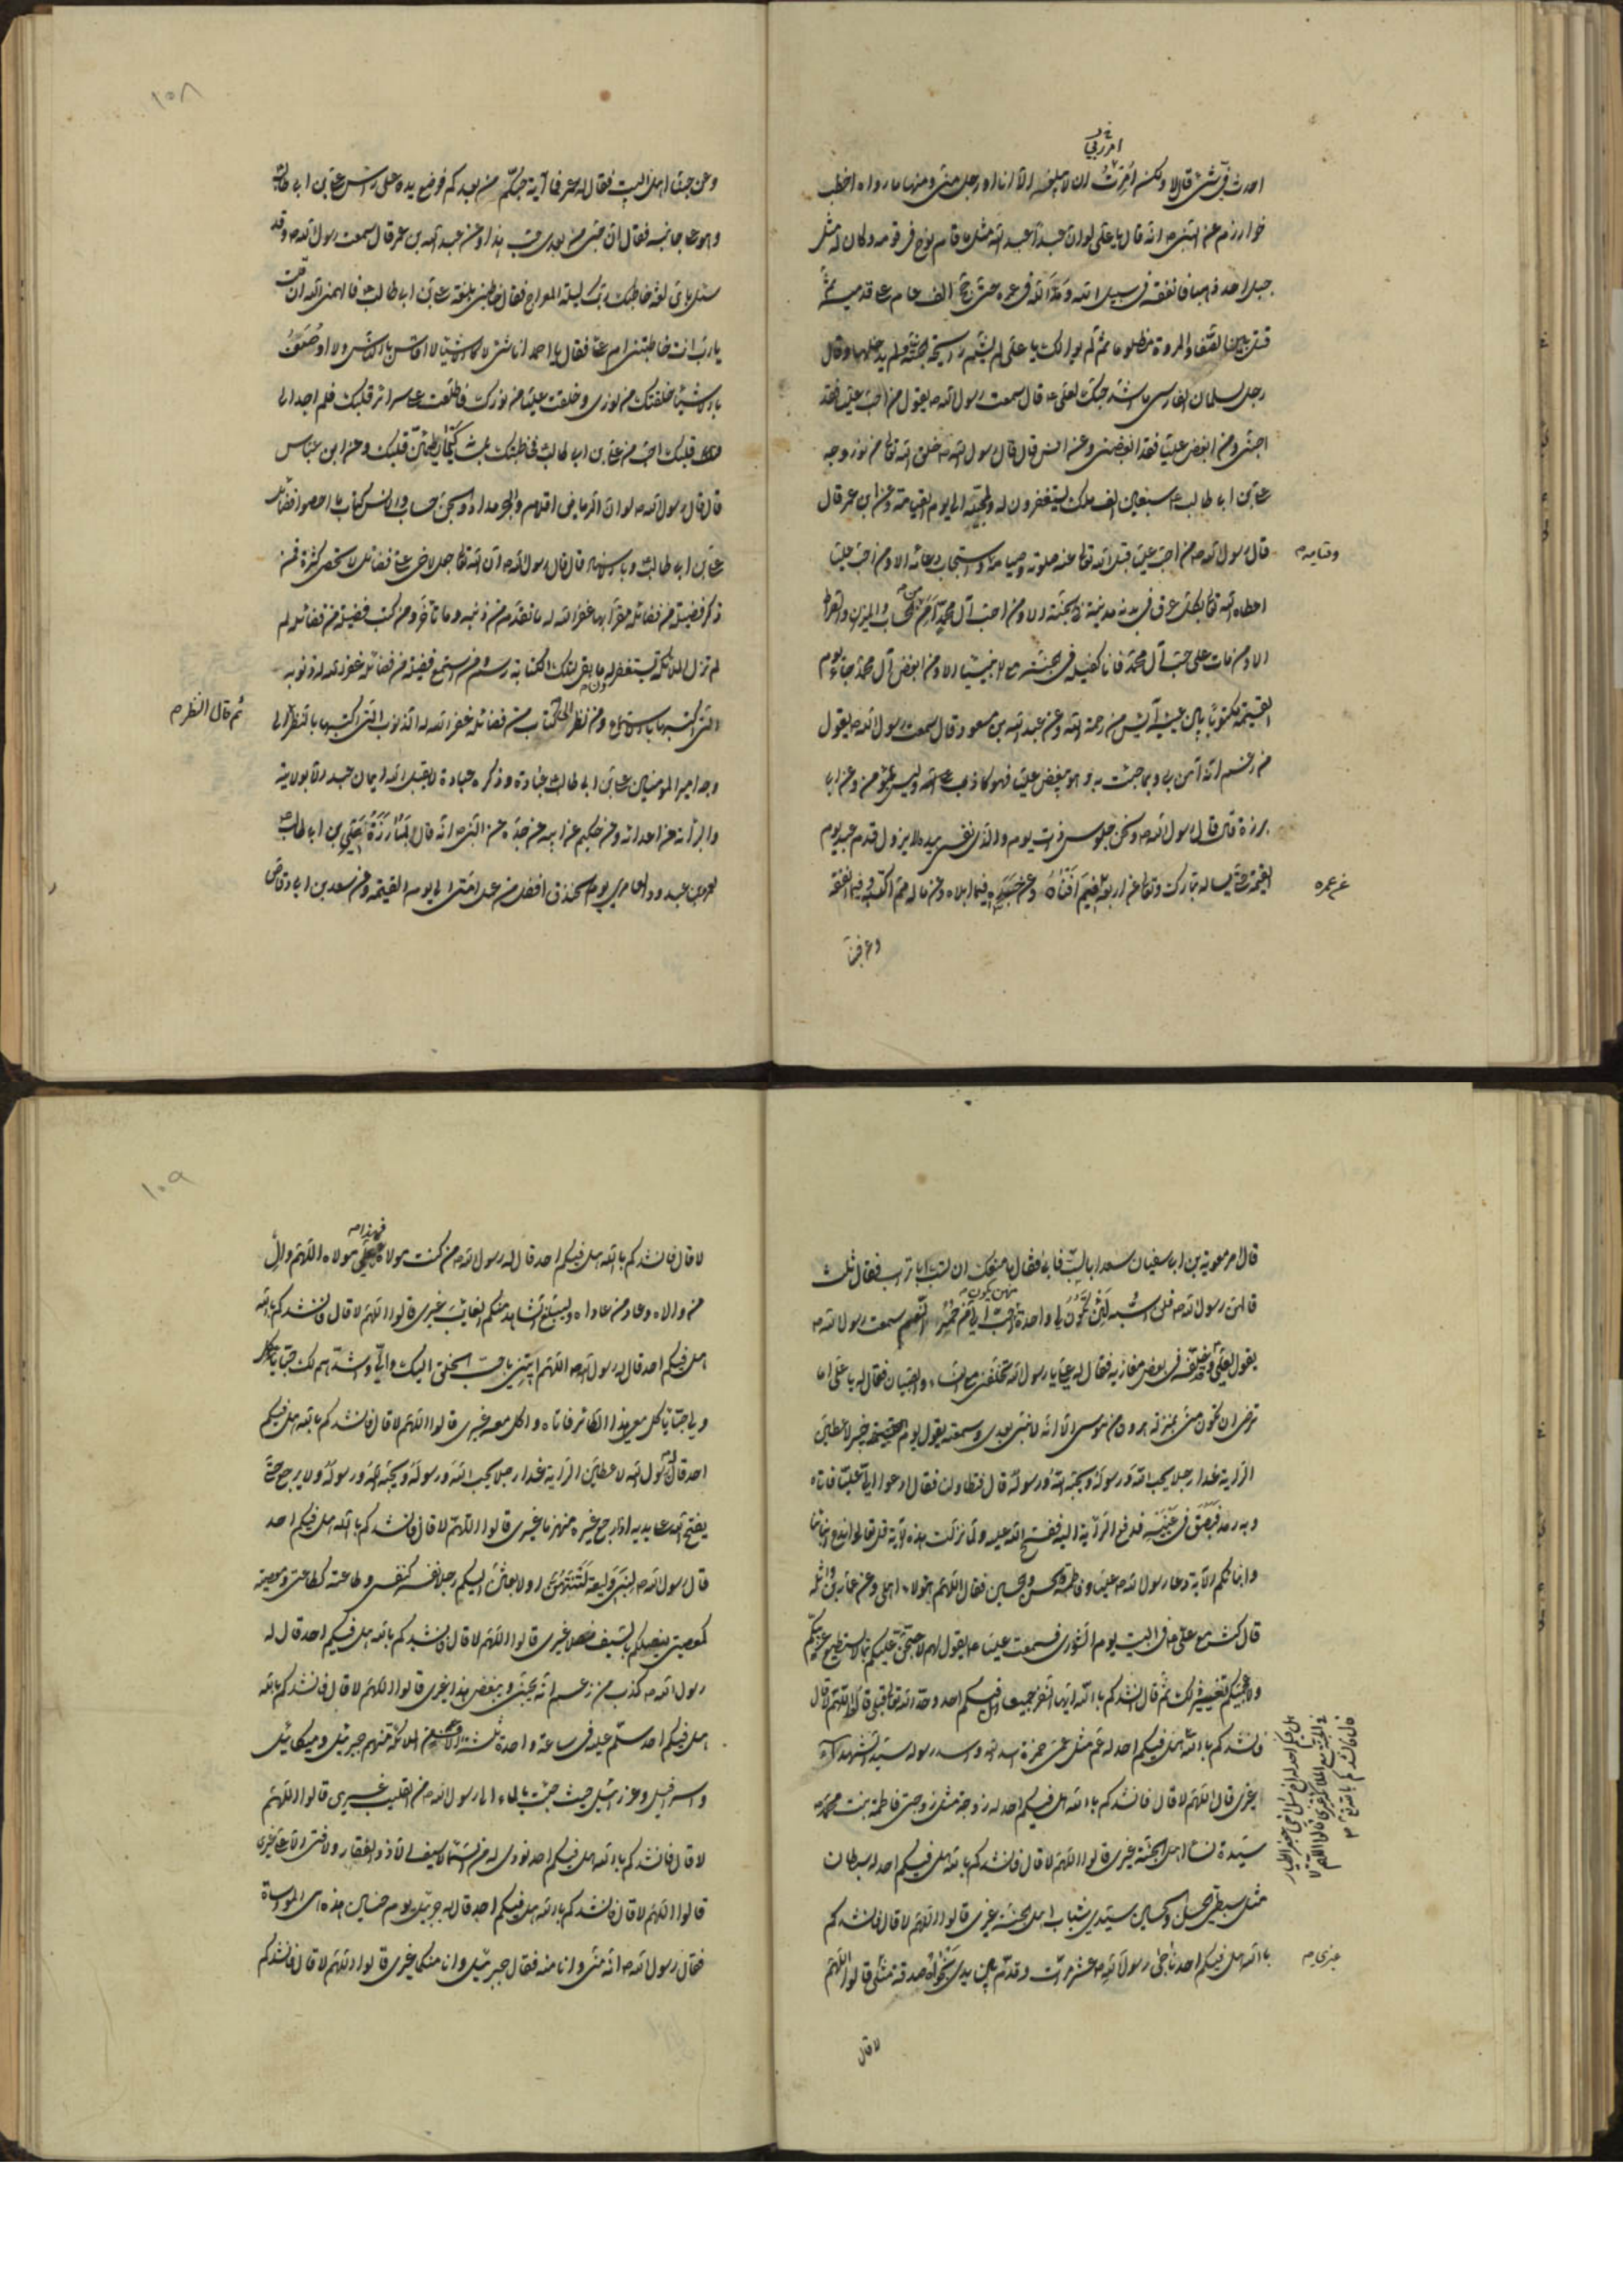 امر ربی
احدث فی شیء قال لا ولکن امرت ان لا یبلغه الا انا او رجل منی ومنها ما رواه اخطب
خوارزم عن النبی ص انه قال یا علی لو ان عبدا عبد الله مثل ما قام نوح فی قومه وکان له مثل
جبل احد ذهبا فانفقه فی سبیل الله ومد الله فی عمره حتی حج الف عام علی قدمیه ثم
قتل بین الصفا والمروة مظلوما ثم لم یوالک یا علی لم یشم رایحة الجنة ولم یدخلها وقال
رجل لسلمان الفارسی ما اشد حبک لعلی ع قال سمعت رسول الله ص یقول من احب علیا فقد
احبنی ومن ابغض علیا فقد ابغضنی وعن انس قال قال رسول الله ص خلق الله تعالی من نور وجه
علی بن ابی طالب ع سبعین الف ملک یستغفرون له ولمحبیه الی یوم القیامة وعن ابن عمر قال
قال رسول الله ص من احب علیا قبل الله تعالی عنه صلوته وصیامه واستجاب دعائه الا ومن احب علیا
وقیامه ص
اعطاه الله تعالی بکل عرق فی بدنه مدینة فی الجنة الا ومن احب آل محمد امن من الحساب والمیزان والصراط
الا ومن مات علی حب آل محمد فانا کفیله فی الجنة مع الانبیاء الا ومن ابغض آل محمد جاء یوم
القیمة مکتوبا بین عینیه آیس من رحمة الله وعن عبد الله بن مسعود قال سمعت رسول الله ص یقول
من زعم انه آمن بی وبما جئت به وهو یبغض علیا فهو کاذب لیس بمؤمن وعن ابی
برزة قال قال رسول الله ص ونحن جلوس ذات یوم والذی نفسی بیده لا یزول قدم عبد یوم
القیمة حتی یساله تبارک وتعالی عن اربع فیم افناه وعن جسده فیما ابلاه وعن ماله مم اکتسبه وفیما انفقه
عن عمره
وعن حبنا
١٠٨
وعن حبنا اهل البیت فقال له عمر فما آیة حبکم من بعدکم فوضع یده علی راس علی بن ابی طالب
وهو علی جانبه فقال ان حبی من بعدی حب هذا وعن عبد الله بن عمر قال سمعت رسول الله ص وقد
سئل بای لغة خاطبک ربک لیلة المعراج فقال خاطبنی بلغة علی بن ابی طالب ع فالهمنی الله ان قلت
یا رب انت خاطبتنی ام علی فقال یا احمد انا شیء لا کالاشیاء لا اقاس بالناس ولا اوصف
بالاشیاء خلقتک من نوری وخلقت علیا من نورک فاطلعت علی سرائر قلبک فلم اجد الی
قلبک احب من علی بن ابی طالب فخاطبتک بلسانه کیما یطمئن قلبک وعن ابن عباس
قال قال رسول الله ص لو ان الریاض اقلام والبحر مداد والجن حساب والانس کتاب ما احصوا فضائل
علی بن ابی طالب وبالاسناد قال قال رسول الله ص ان الله تعالی جعل لاخی علی فضائل لا تحصی کثرة فمن
ذکر فضیلة من فضائله مقرا بها غفر الله له ما تقدم من ذنبه وما تاخر ومن کتب فضیلة من فضائله لم
تزل الملائکة تستغفر له ما بقی لتلک الکتابة رسم ومن استمع فضیلة من فضائله غفر الله له ذنوبه
التی اکتسبها بالاستماع ومن نظر الی کتاب من فضائله غفر الله له الذنوب التی اکتسبها بالنظر الی
ثم قال النظر ص
وجه امیر المومنین علی بن ابی طالب عبادة وذکره عبادة لا یقبل الله ایمان عبد الا بولایته
والبرائة من اعدائه وعن حکیم عن ابیه عن جده عن النبی ص انه قال لمبارزة علی بن ابی طالب ع
لعمرو بن عبد ود العامری یوم الخندق افضل من عمل امتی الی یوم القیمة وعن سعد بن ابی وقاص
قال امر معویة بن ابی سفیان سعدا بالسب فابی فقال ما منعک ان تسب ابا تراب فقال ثلث
قالهن رسول الله ص فلن اسبه لئن تکون لی واحدة منهن احب الی من حمر النعم سمعت رسول الله ص
یقول لعلی وخلفه فی بعض مغازیه فقال له علی یا رسول الله تخلفنی مع النساء والصبیان فقال له یا علی اما
ترضی ان تکون منی بمنزلة هرون من موسی الا انه لا نبی بعدی وسمعته یقول یوم خیبر لاعطین
الرایة غدا رجلا یحب الله ورسوله ویحبه الله ورسوله قال فتطاولنا فقال ادعوا الی علیا فاتاه
وبه رمد فبصق فی عینیه فدفع الرایة الیه ففتح الله علیه ولما نزلت هذه الآیة قل تعالوا ندع ابنائنا
وابنائکم الآیة دعا رسول الله ص علیا وفاطمة والحسن والحسین فقال اللهم هؤلاء اهلی وعن عامر بن واثلة
قال کنت مع علی ع فی البیت یوم الشوری فسمعت علیا ع یقول لهم لاحتجن علیکم بما لا یستطیع عربیکم
ولا عجمیکم تغییر ذلک ثم قال انشدکم بالله ایها النفر جمیعا افیکم احد وحد الله تعالی قبلی قالوا اللهم لا قال
فانشدکم بالله هل فیکم احد له عم مثل عمی حمزة اسد الله واسد رسوله سید الشهداء
غیری قالوا اللهم لا قال فانشدکم بالله هل فیکم احد له زوجة مثل زوجتی فاطمة بنت محمد ص
سیدة نساء اهل الجنة غیری قالوا اللهم لا قال فانشدکم بالله هل فیکم احد له سبطان
مثل سبطی الحسن والحسین سیدی شباب اهل الجنة غیری قالوا اللهم لا قال فانشدکم
بالله هل فیکم احد ناجی رسول الله ص عشر مرات وقدم بین یدی نجواه صدقة مثلی قالوا اللهم
غیری ص
هل فیکم احد له اخ مثل اخی جعفر الطیار
فی الجنة مع الملائکة غیری قالوا اللهم لا
قال فانشدکم بالله
لا قال
١٠٩
فهذا ص
لا قال فانشدکم بالله هل فیکم احد قال له رسول الله ص من کنت مولاه فعلی مولاه اللهم وال
من والاه وعاد من عاداه ولیبلغ الشاهد منکم الغائب غیری قالوا اللهم لا قال فانشدکم بالله
هل فیکم احد قال له رسول الله ص اللهم ایتنی باحب الخلق الیک والی واشدهم لک حبا
ولی حبا یاکل معی هذا الطائر فاتاه واکل معه غیری قالوا اللهم لا قال فانشدکم بالله هل فیکم
احد قال له رسول الله لاعطین الرایة غدا رجلا یحب الله ورسوله ویحبه الله ورسوله ولا یرجع حتی
یفتح الله علی یدیه اذ رجع غیره منهزما غیری قالوا اللهم لا قال فانشدکم بالله هل فیکم احد
قال رسول الله ص لبنی ولیعة لتنتهن او لابعثن الیکم رجلا نفسه کنفسی وطاعته کطاعتی ومعصیته
کمعصیتی یفصلکم بالسیف غیری قالوا اللهم لا قال فانشدکم بالله هل فیکم احد قال له
رسول الله ص کذب من زعم انه یحبنی ویبغض هذا غیری قالوا اللهم لا قال فانشدکم بالله
هل فیکم احد سلم علیه فی ساعة واحدة ثلثة آلاف من الملائکة منهم جبرئیل ومیکائیل
واسرافیل وعزرائیل حیث جئت بالماء الی رسول الله ص من القلیب غیری قالوا اللهم
لا قال فانشدکم بالله هل فیکم احد نودی له من السماء لا سیف الا ذو الفقار ولا فتی الا علی غیری
قالوا اللهم لا قال فانشدکم بالله هل فیکم احد قال له جبرئیل یوم حنین هذه هی المواساة
فقال رسول الله ص انه منی وانا منه فقال جبرئیل وانا منکما غیری قالوا اللهم لا قال فانشدکم